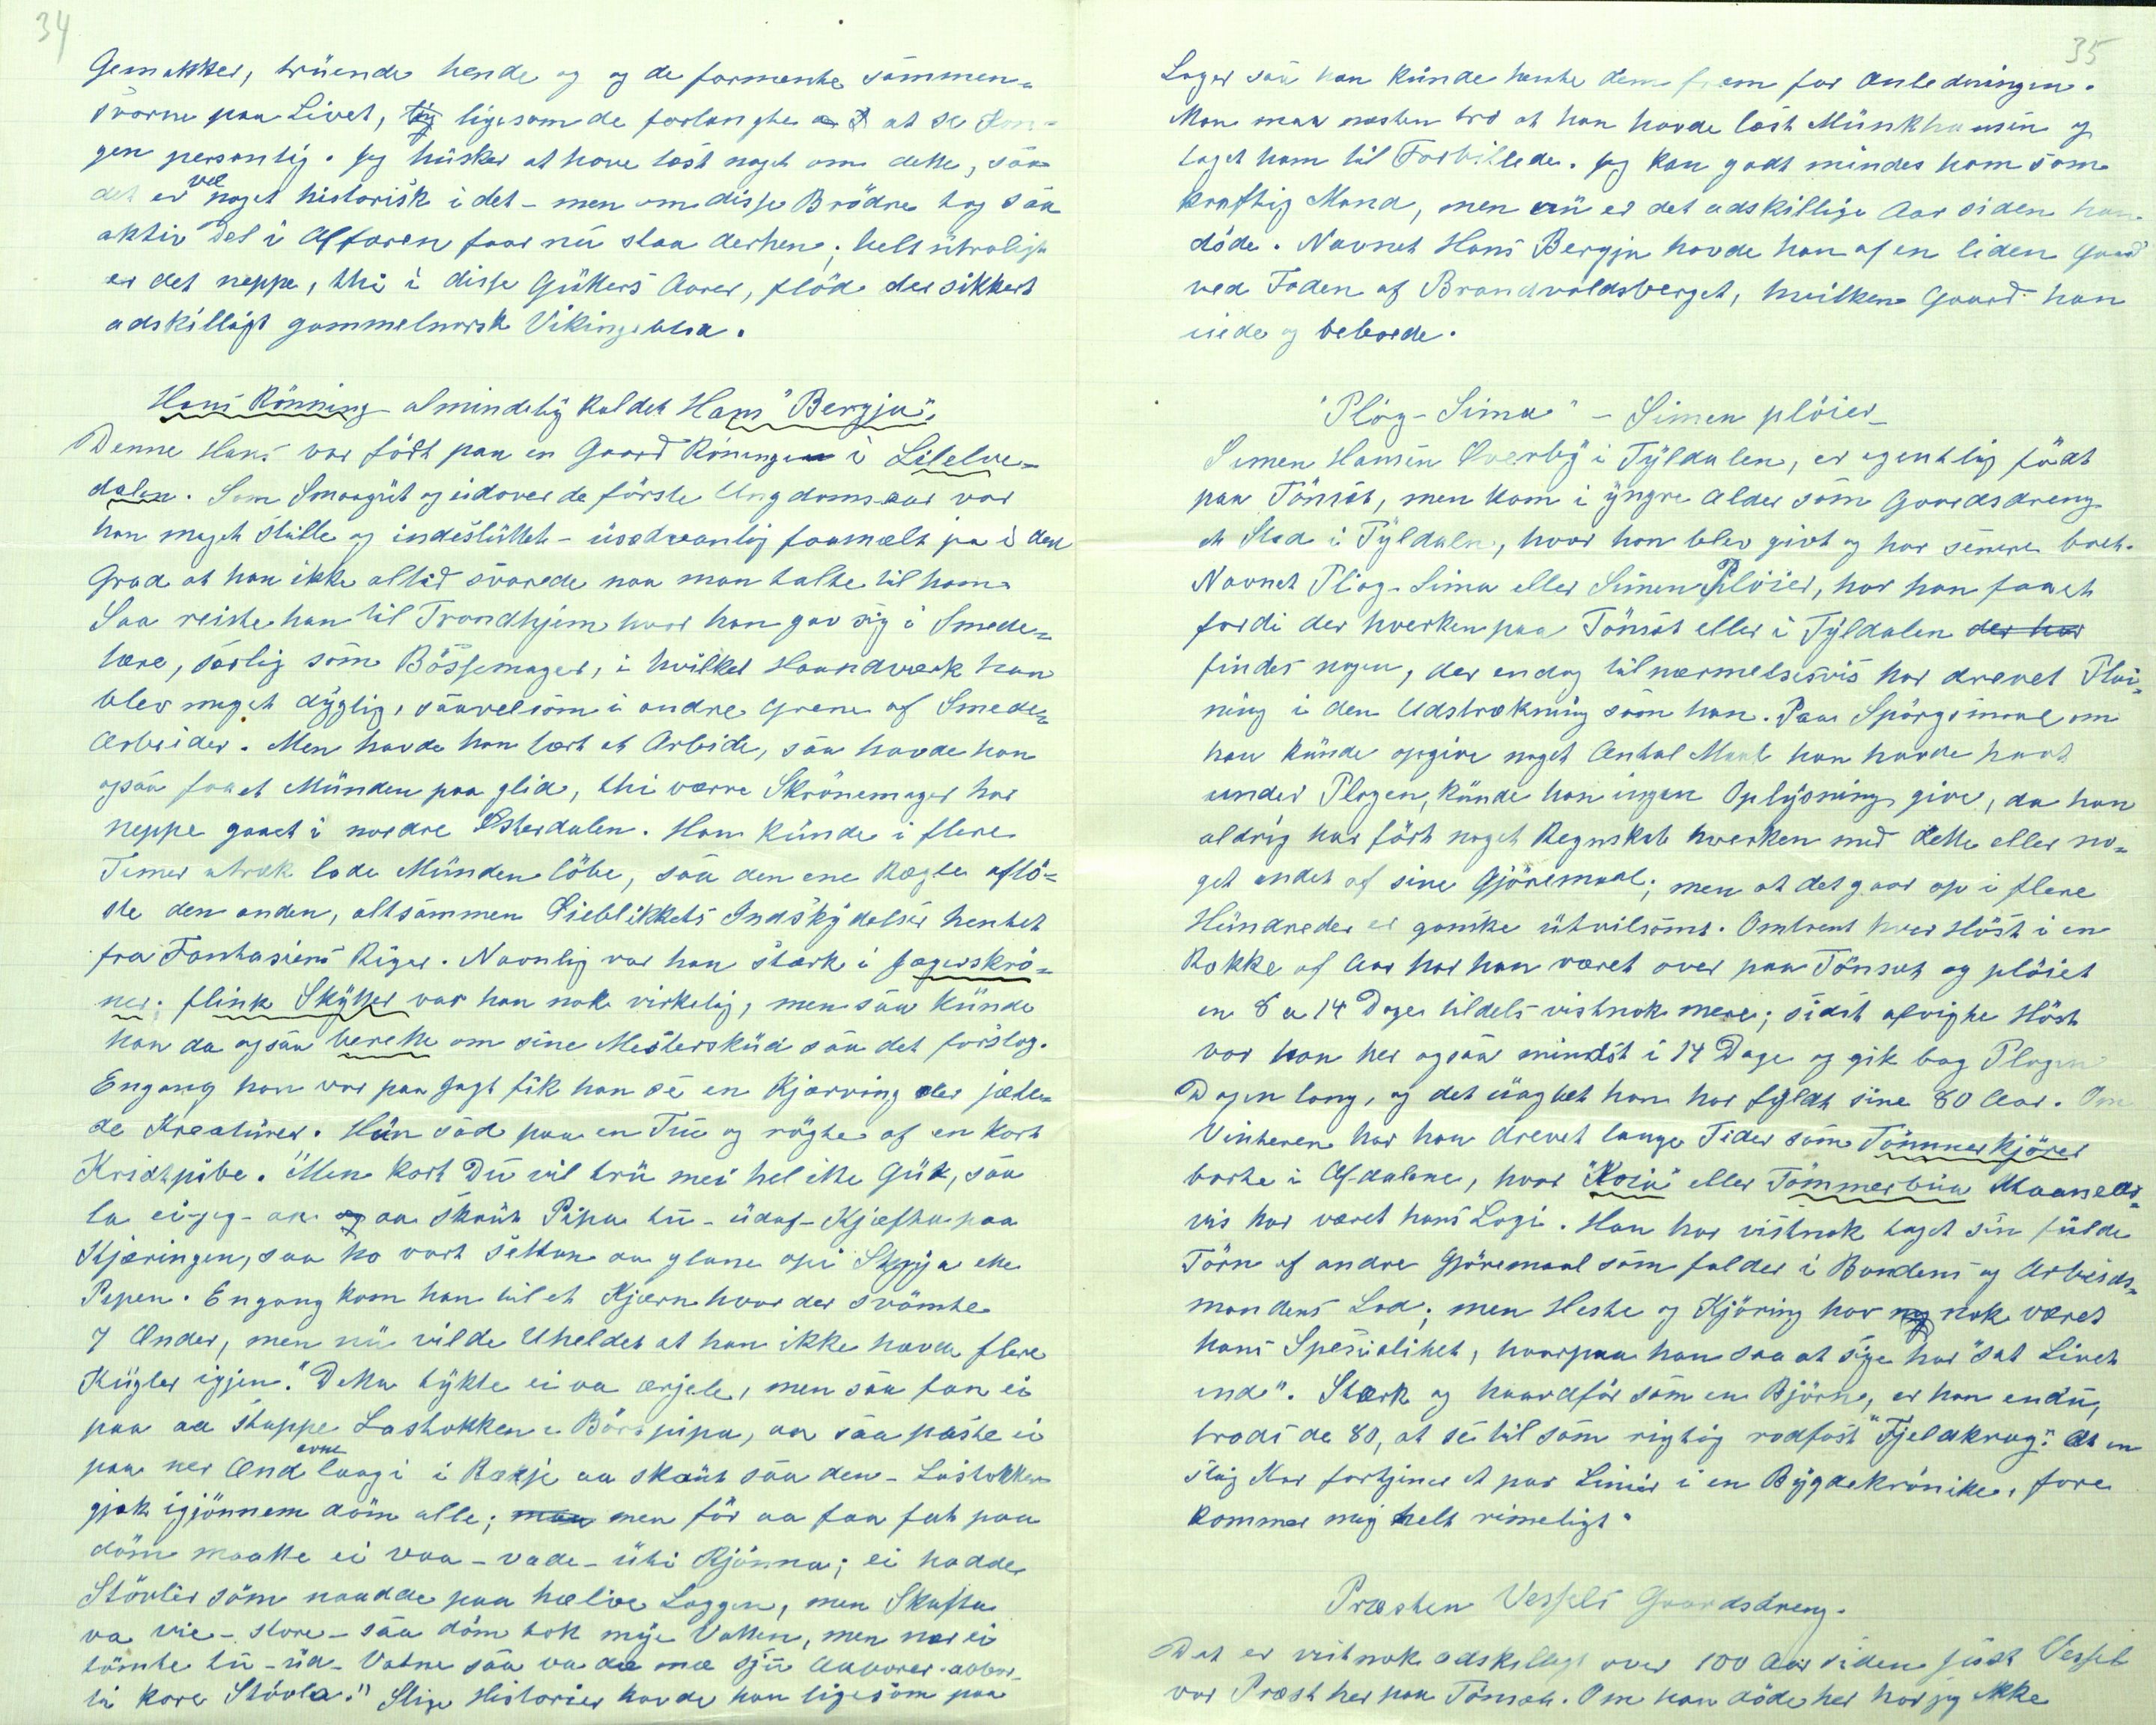 34
Gemakker, truende hende og og de formente sammen-
svorne paa Livet, lig ligesom de forlangte at se Kon-
gen personlig. Jeg husker at have læst noget om dette, saa
det er vel noget historisk i det - men om disse Brödre tog saa
aktiv Del i Affæren faar nu staa derhen; helt utroligt
er det neppe, thi i disse Gutters Aarer, flöd der sikkert
adskilligt gammelnorsk Vikingeblod.
Hans Rönning almindelig kaldet Hans "Bergja".
Denne Hans var födt paa en Gaard Röningen i Lilelve-
dalen. Som Smaagut og udover de förste Ungdomsaar var
han meget stille og indesluttet - usedvanlig faamælt ja i den
Grad at han ikke altid svarede naa man talte til ham.
Saa reiste han til Trondhjem hvor han gav sig i Smede-
lære, særlig som Bössemager, i hvilket Haandværk han
blev meget dygtig, saavelsom i andre Grene af Smede-
Arbeider. Men havde han lært et Arbeide, saa havde han
ogsaa faaet Munden paa glid, thi værre Skrönemager har
neppe gaaet i nordre Österdalen. Han kunde i flere
Timer itræk lade Munden löbe, saa den ene Regle aflö-
ste den anden, altsammen Öieblikkets Indskydelser hentet
fra Fantasiens Riger. Navnlig var han stærk i Jagerskrö-
ner; flink Skytter var han nok virkelig, men saa kunde
han da ogsaa berette om sine Mesterskud saa det forslog.
Engang han var paa Jagt fik han se en Kjærring der jæte-
de Kreaturer. Hun sad paa en Tue og rögte af en kort
Kridtpibe. "Men kort Du vil tru mei hel itte Guk, saa
la ei-jeg- an og aa skaut Pipa tu - udaf - Kjæfta paa
Kjæringen, saa ho vart sittan aa glane opi Skyya ette
Pipen. Engang kom han til et Kjærn hvor der svömte
7 Ænder, men nu vilde Uheldet at han ikke havde flere
Kugler igjen." Detta tykte ei va ærjele, men saa fan ei
paa aa stappe Lastokken i Börspipa, aa saa paste ei
paa ner Ænd'erne laag i i Rækje aa skaut saa den - Lastokken
gjek igjönnem döm alle; men för aa faa fat paa
döm maatte ei vaa - vade - uti Kjönna; ei hadde
Stövler söm naadde paa hælve Laggen, men Skafta
va vie - store - saa döm tok mye Vatten, men nar ei
tömte tu - ud - Vatne saa va de me sju Aaborer-abbor-
ti kore Stövla." Slige Historier havde han ligesom paa
35
Lager saa han kunde hente dem frem for Anledningen.
Man maa næsten tro at han havde læst Münkhausen og
taget ham til Forbillede. Jeg kan godt mindes ham som
kraftig Mand, men nu er det adskillige Aar siden han
döde. Navnet Hans Bergja havde han af en liden Gaard
ved Foden af Brandvoldsberget, hvilken Gaard han
eiede og beboede.
"Plog-Sima" - Simen plöier -
Simen Hansen Överby i Tyldalen, er egentlig födt
paa Tönset, men kom i yngre Alder som Gaardsdreng
et Sted i Tyldalen, hvor han blev givt og har senere boet.
Navnet Plog-Sima eller Simen Plöier, har han faaet
fordi der hverken paa Tönset eller i Tyldalen der har
findes nogen, der endog tilnærmelsesvis har drevet Plöi-
ning i den Udstrækning som han. Paa Spörgsmaal om
han kunde opgive noget Antal Maal han havde havt
under Plogen, kunde han ingen Oplysning give, da han
aldrig har fört noget Regnskab hverken med dette eller no-
get andet af sine Gjöremaal; men at det gaar op i flere
Hundreder er ganske utvilsomt. Omtrent hver Höst i en
Rekke af Aar har han været over paa Tönset og plöiet
en 8 a 14 Dage tildels vistnok mere; sidst afvigte Höst
var han her ogsaa mindst i 14 Dage og gik bag Plogen
Dagen lang, og det uagtet han har fyldt sine 80 Aar. Om
Vinteren har han drevet lange Tider som Tömmerkjörer
borte i Afdalene, hvor "Koia" eller Tömmerbua Maaneds-
vis har været hans Logi. Han har vistnok taget sin fulde
Törn af andre Gjöremaal som falder i Bondens og Arbeids-
mandens Lod; men Heste og Kjöring har nok været
hans Spesialitet, hvorpaa han saa at sige har "sat Livet
ind". Stærk og haardför som en Björn, er han endnu,
trods de 80, at se til som rigtig rodfast "Fjeldkrag". At en
slig Kar fortjener et par Linier i en Bygdekrönike, fore
kommer mig helt rimeligt.
Præsten Vessels Gaardsdreng.
Det er vistnok adskilligt over 100 Aar siden sidst Vessel
var Præst her paa Tönset. Om han döde her har jeg ikke